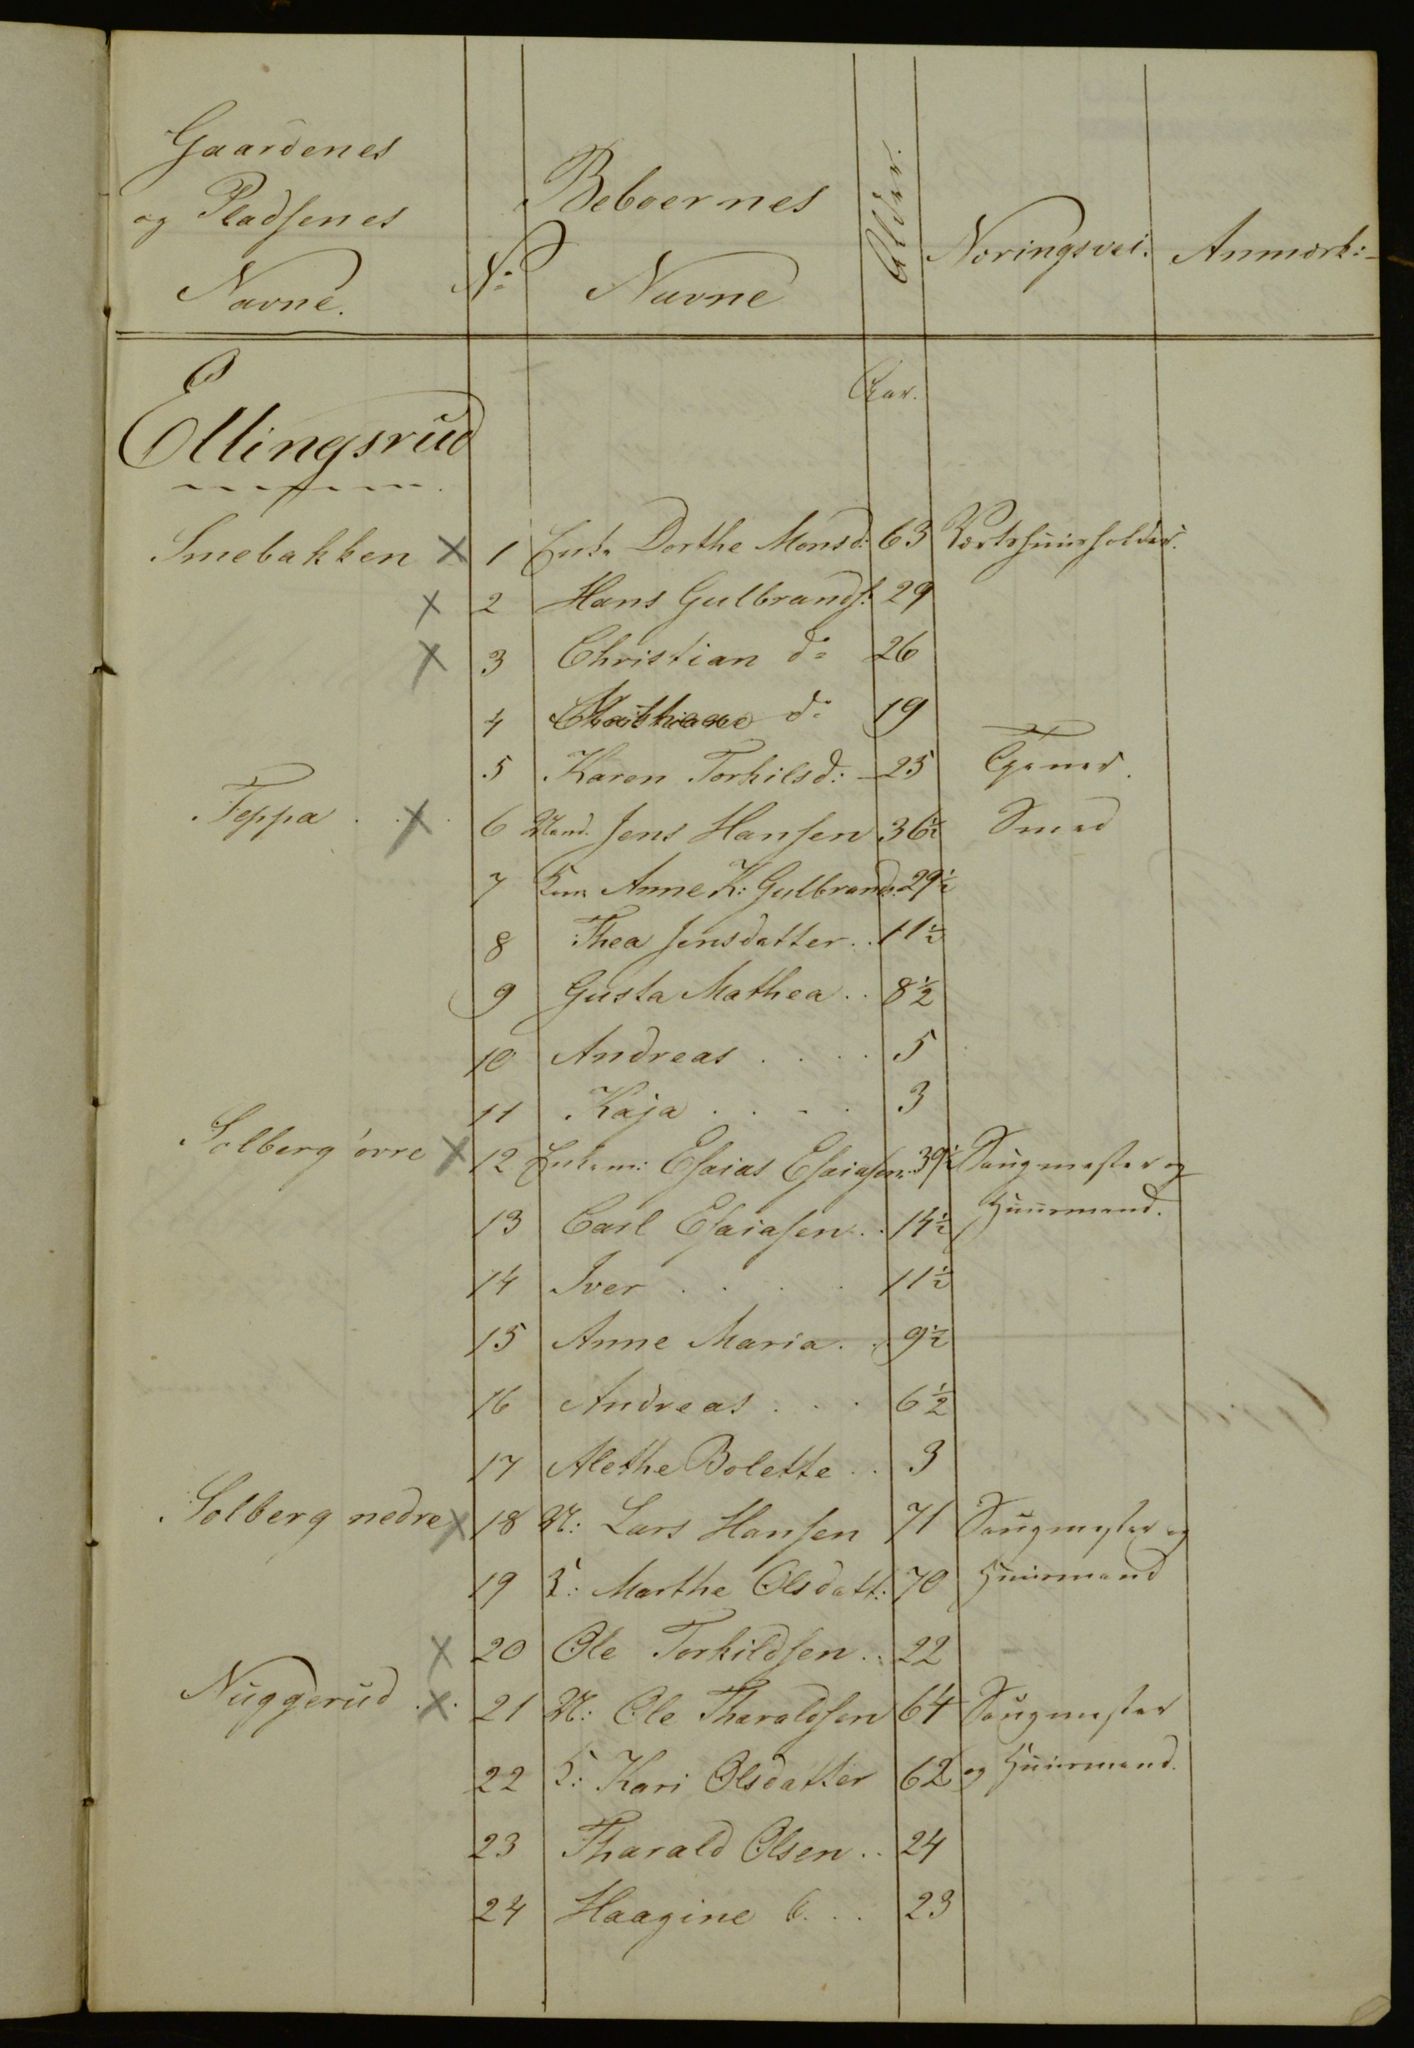 Gaardenes
og Pladsenes
Navne.
No
Beboernes
Navne
Alder.
Næringsvei.
Anmærk:
Aar.
Ellingsrud
Smebakken × 1 Enke Dorthe Monsd: 63 Værtshuusholder.
× 2 Hans Gulbrands: 29
× 3 Christian do 26
4 do 19
5 Karen Torkilsd: 25 Tjener.
Teppa . . × . 6 Mand. Jens Hansen 36½ Smed
7 Kone Anne K: Gulbrands. 29½
8 Thea Jensdatter . . 11½
9 Gusta Mathea . . 8½
10 Andreas . . . . 5
11 Kaja . . . . 3
Solberg øvre × 12 Enkem: Esaias Esaiasen. 39½ Saugmester og
Huusmand.
13 Carl Esaiasen . . 14½
14 Iver . . . . 11½
15 Anne Maria . . 9½
16 Andreas . . . 6½
17 Alethe Bolette . . 3
Solberg nedre × 18 M: Lars Hansen 71 Saugmester og
19 K: Marthe Olsdatt: 70 Huusmand
× 20 Ole Torkildsen . . 22
Nuggerud . × . 21 M: Ole Tharaldsen 64 Saugmester
22 K: Kari Olsdatter 62 og Huusmand.
23 Tharald Olsen . . 24
24 Haagine . . . 23